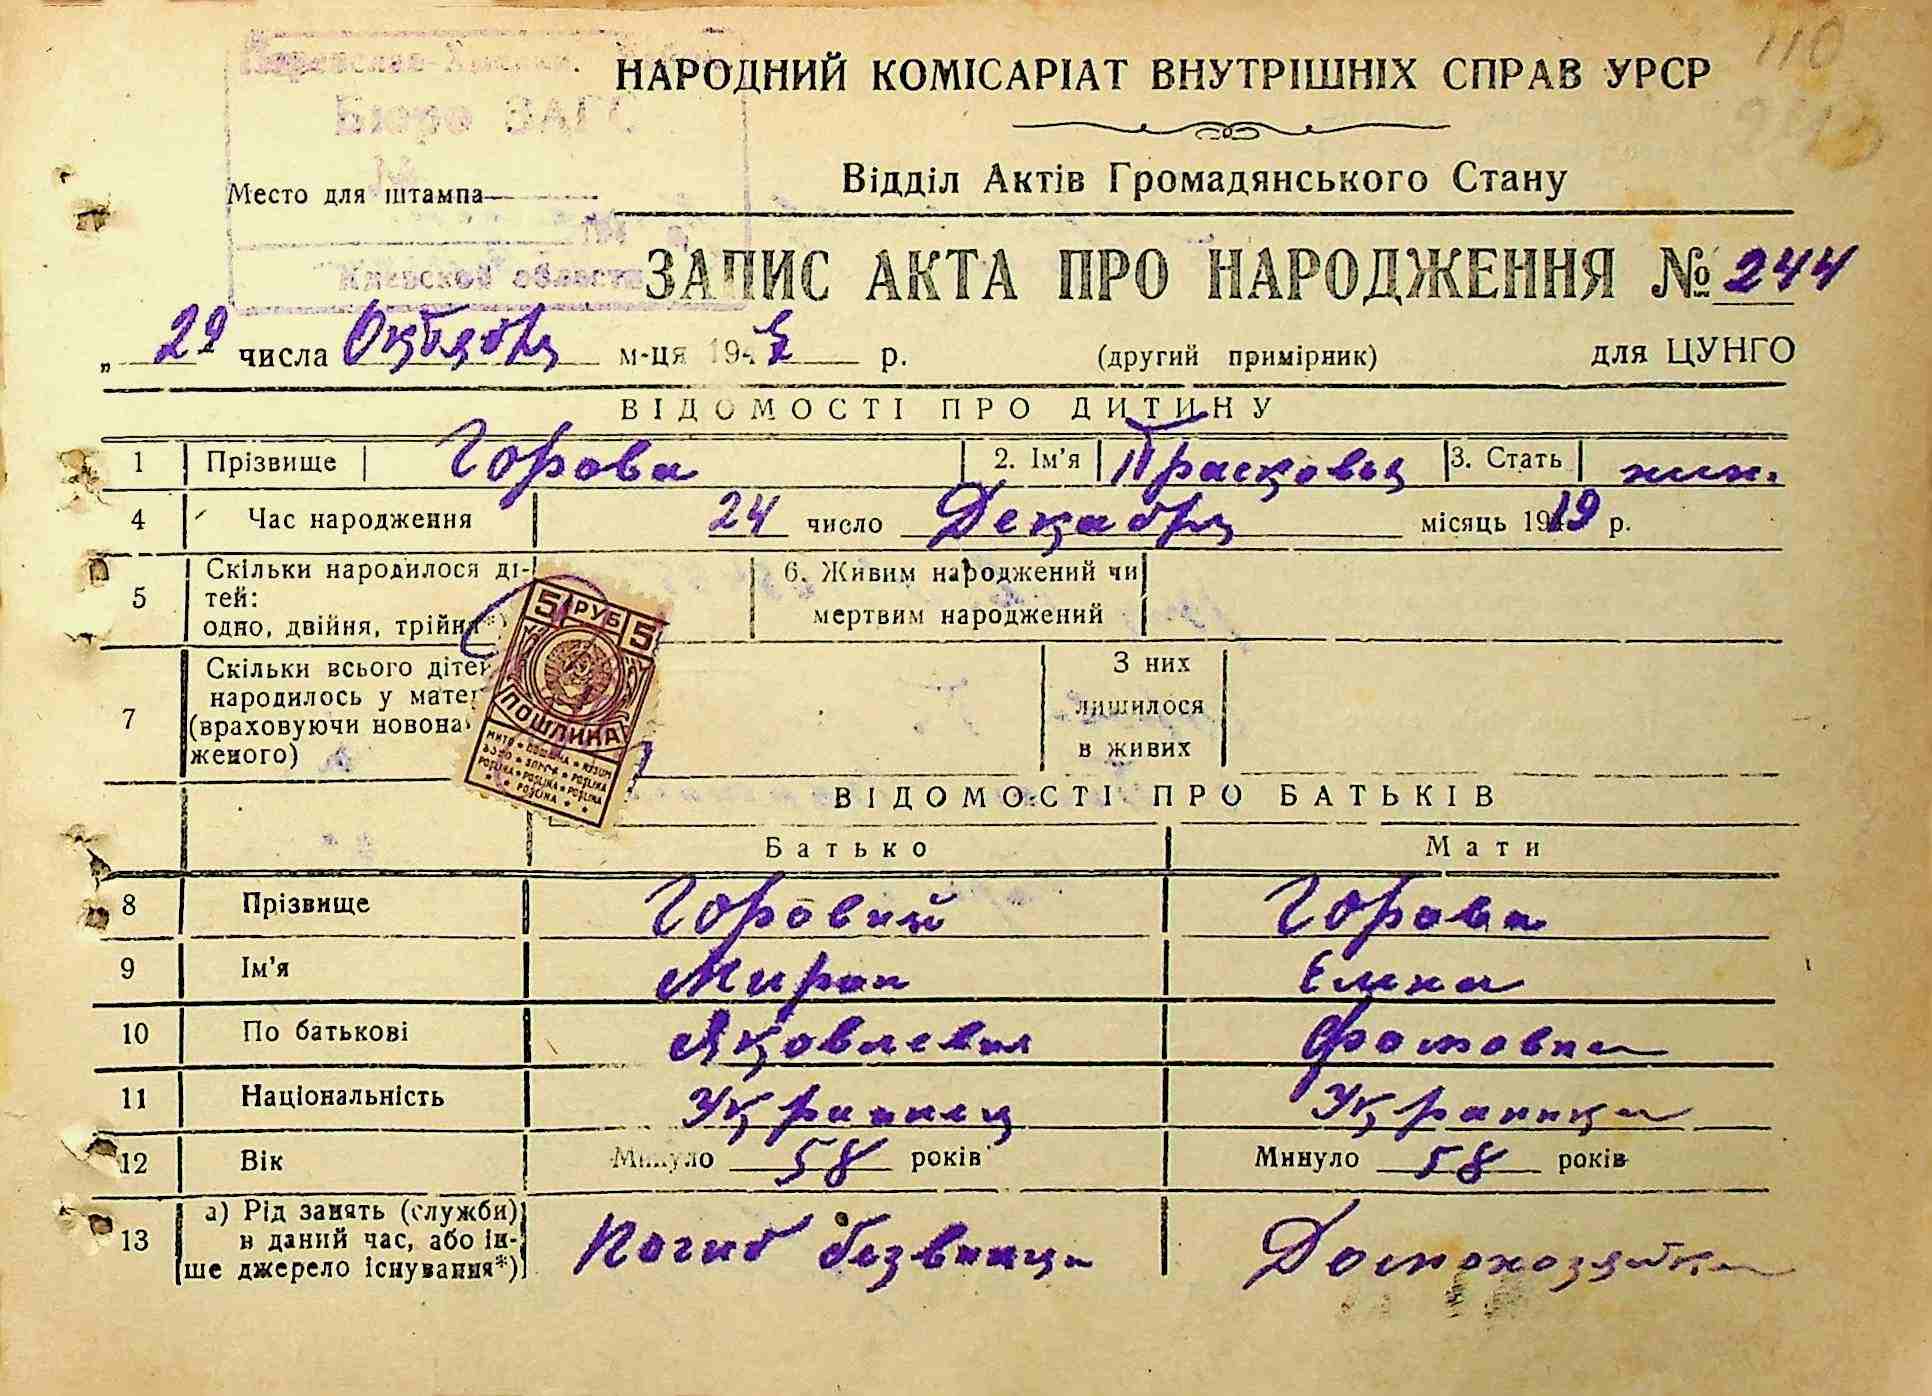 110
НАРОДНИЙ КОМІСАРІАТ ВНУТРІШНІХ СПРАВ УРСР
Бюро ЗАГС
Відділ Актів Громадянського Стану
Место для штампа
Киевской области
ЗАПИС АКТА ПРО НАРОДЖЕННЯ № 244
„ 29 числа Октября м-ця 194 р. (другий примірник) для ЦУНГО
ВІДОМОСТІ ПРО ДИТИНУ
1 Прізвище Горова 2. Ім'я Прасковья 3. Стать жин.
4 Час народження 24 число Декабря місяць 1919 р.
5 Скільки народилося ді-
тей:
одно, двійня, трійня*)
6. Живим народжений чи
мертвим народжений
7 Скільки всього дітей
народилось у мате
(враховуючи новона
женого)
З них
лишилося
в живих
5 РУБ 5
ПОШЛИНА
ВІДОМОСТІ ПРО БАТЬКІВ
Батько Мати
8 Прізвище Горовий Горова
9 Ім'я Мирон Елена
10 По батькові Яковлевич Фомовна
11 Національність Украинец Украинка
12 Вік Минуло 58 років Минуло 58 років
13 а) Рід занять (служби)
в даний час, або ін-
ше джерело існування*)
Погиб безвинци Домохозяйка